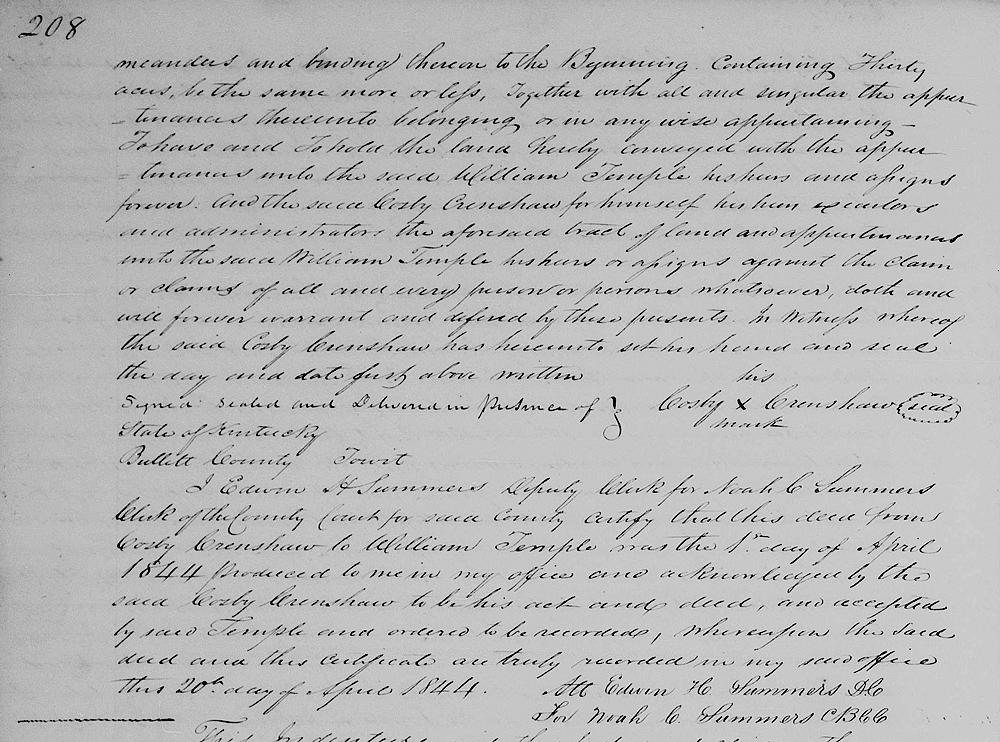 208
meanders and binding thereon to the Beginning. Containing Thirty
acres, be the same more or less, Together with all and singular the appur
-tinances thereunto belonging or in any wise appertaining -
To have and To hold the land hereby conveyed with the appur
=tinances unto the said William Temple his heirs and assigns
forever. And the said Cosby Crenshaw for himself his heirs executors
and administrators the aforesaid tract of land and appurtinances
unto the said William Temple his heirs or assigns against the claim
or claims of all and every person or persons whatsoever, doth and
will forever warrant and defend by these presents. In Witness whereof
the said Cosby Crenshaw has hereunto set his hand and seal
the day and date first above written his
Signed Sealed and Delivered in presence of } Cosby x Crenshaw seal
State of Kentucky mark
Bullitt County Towit
I Edwin H Summers Deputy Clerk for Noah C Summers
Clerk of the County Court for said County certify that this deed from
Cosby Crenshaw to William Temple was the 1st day of April
1844 produced to me in my office and acknowledged by the
said Cosby Crenshaw to be his act and deed, and accepted
by said Temple and ordered to be recorded, whereupon the said
deed and this certificate are truly recorded in my said office
this 20th day of April 1844. Att Edwin H. Summers D.C
For Noah C. Summers CBCC
This Indenture